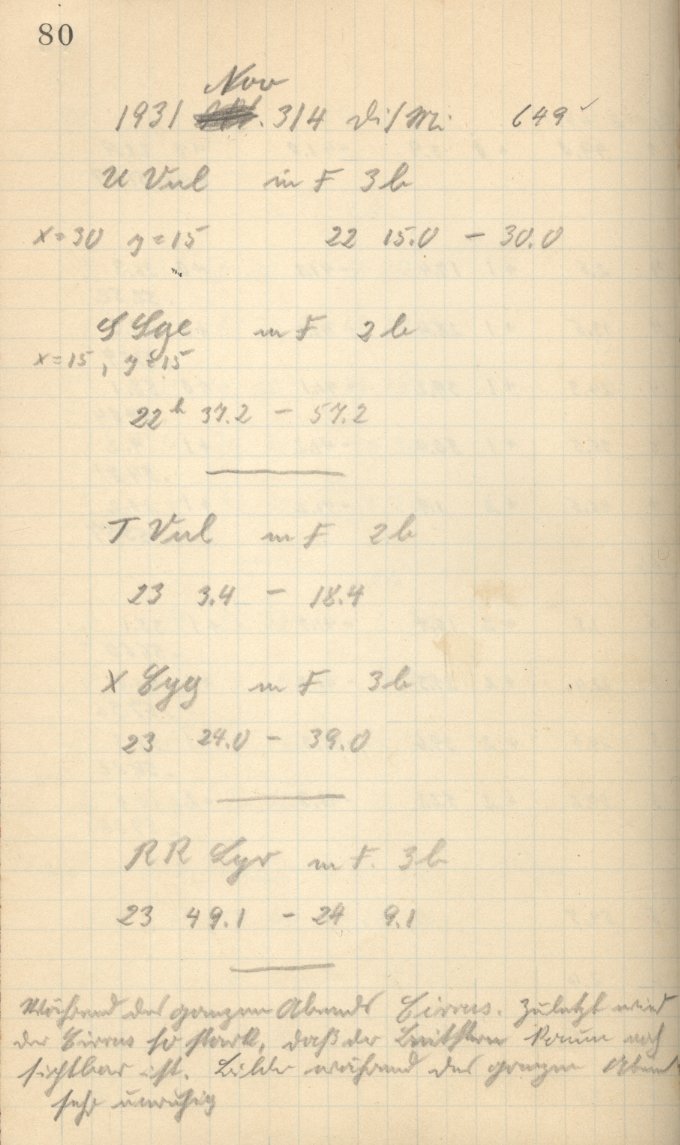 80
Nov
1931 3/4 Di/Mi 649
U Vul in F 3b
x=30 y=15 22 15.0 - 30.0
S Sge in F 2b
x=15, y=15
22h 37.2 - 57.2
T Vul in F 2b
23 3.4 - 18.4
X Cyg in F 3b
23 24.0 - 39.0
RR Lyr in F. 3b
23 49.1 - 24 9.1
Während des ganzen Abends Cirrus. Zuletzt wird
der Cirrus so stark, daß der Leitstern kaum noch
sichtbar ist. Bilder während des ganzen Abends
sehr unruhig